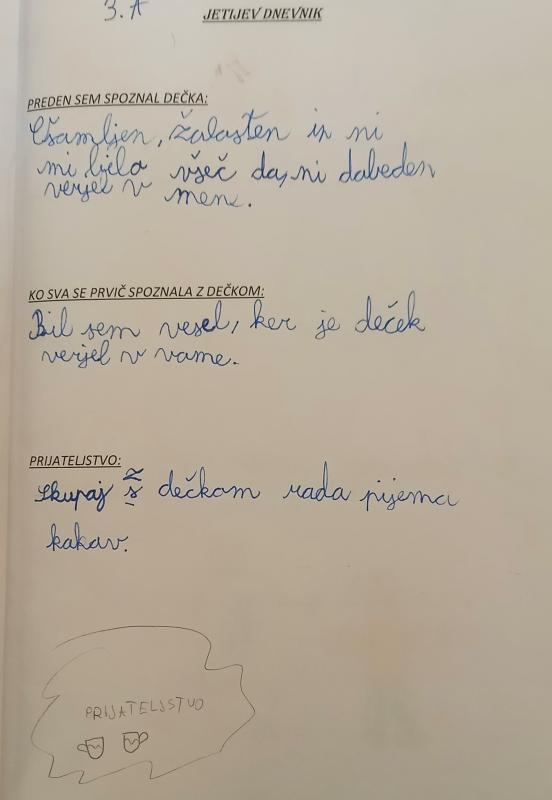 3. A
JETIJEV DNEVNIK
PREDEN SEM SPOZNAL DEČKA:
Osamljen, žalosten in ni
mi bilo všeč da, ni dobeden
verjel v mene.
KO SVA SE PRVIČ SPOZNALA Z DEČKOM:
Bil sem vesel, ker je deček
verjel v vame.
PRIJATELJSTVO:
Skupaj z dečkom rada pijema
kakav.
PRIJATELJSTVO